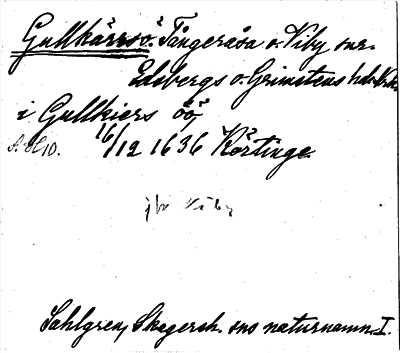 Gullkärrsö. Tångeråsa o. Viby snr.
Edsbergs o. Grimstens hdr.
i Gullkiers öö,
16/12 1636 Körtinge.
jfr Viby
Sahlgren, Skagersh. sns naturnamn. I.